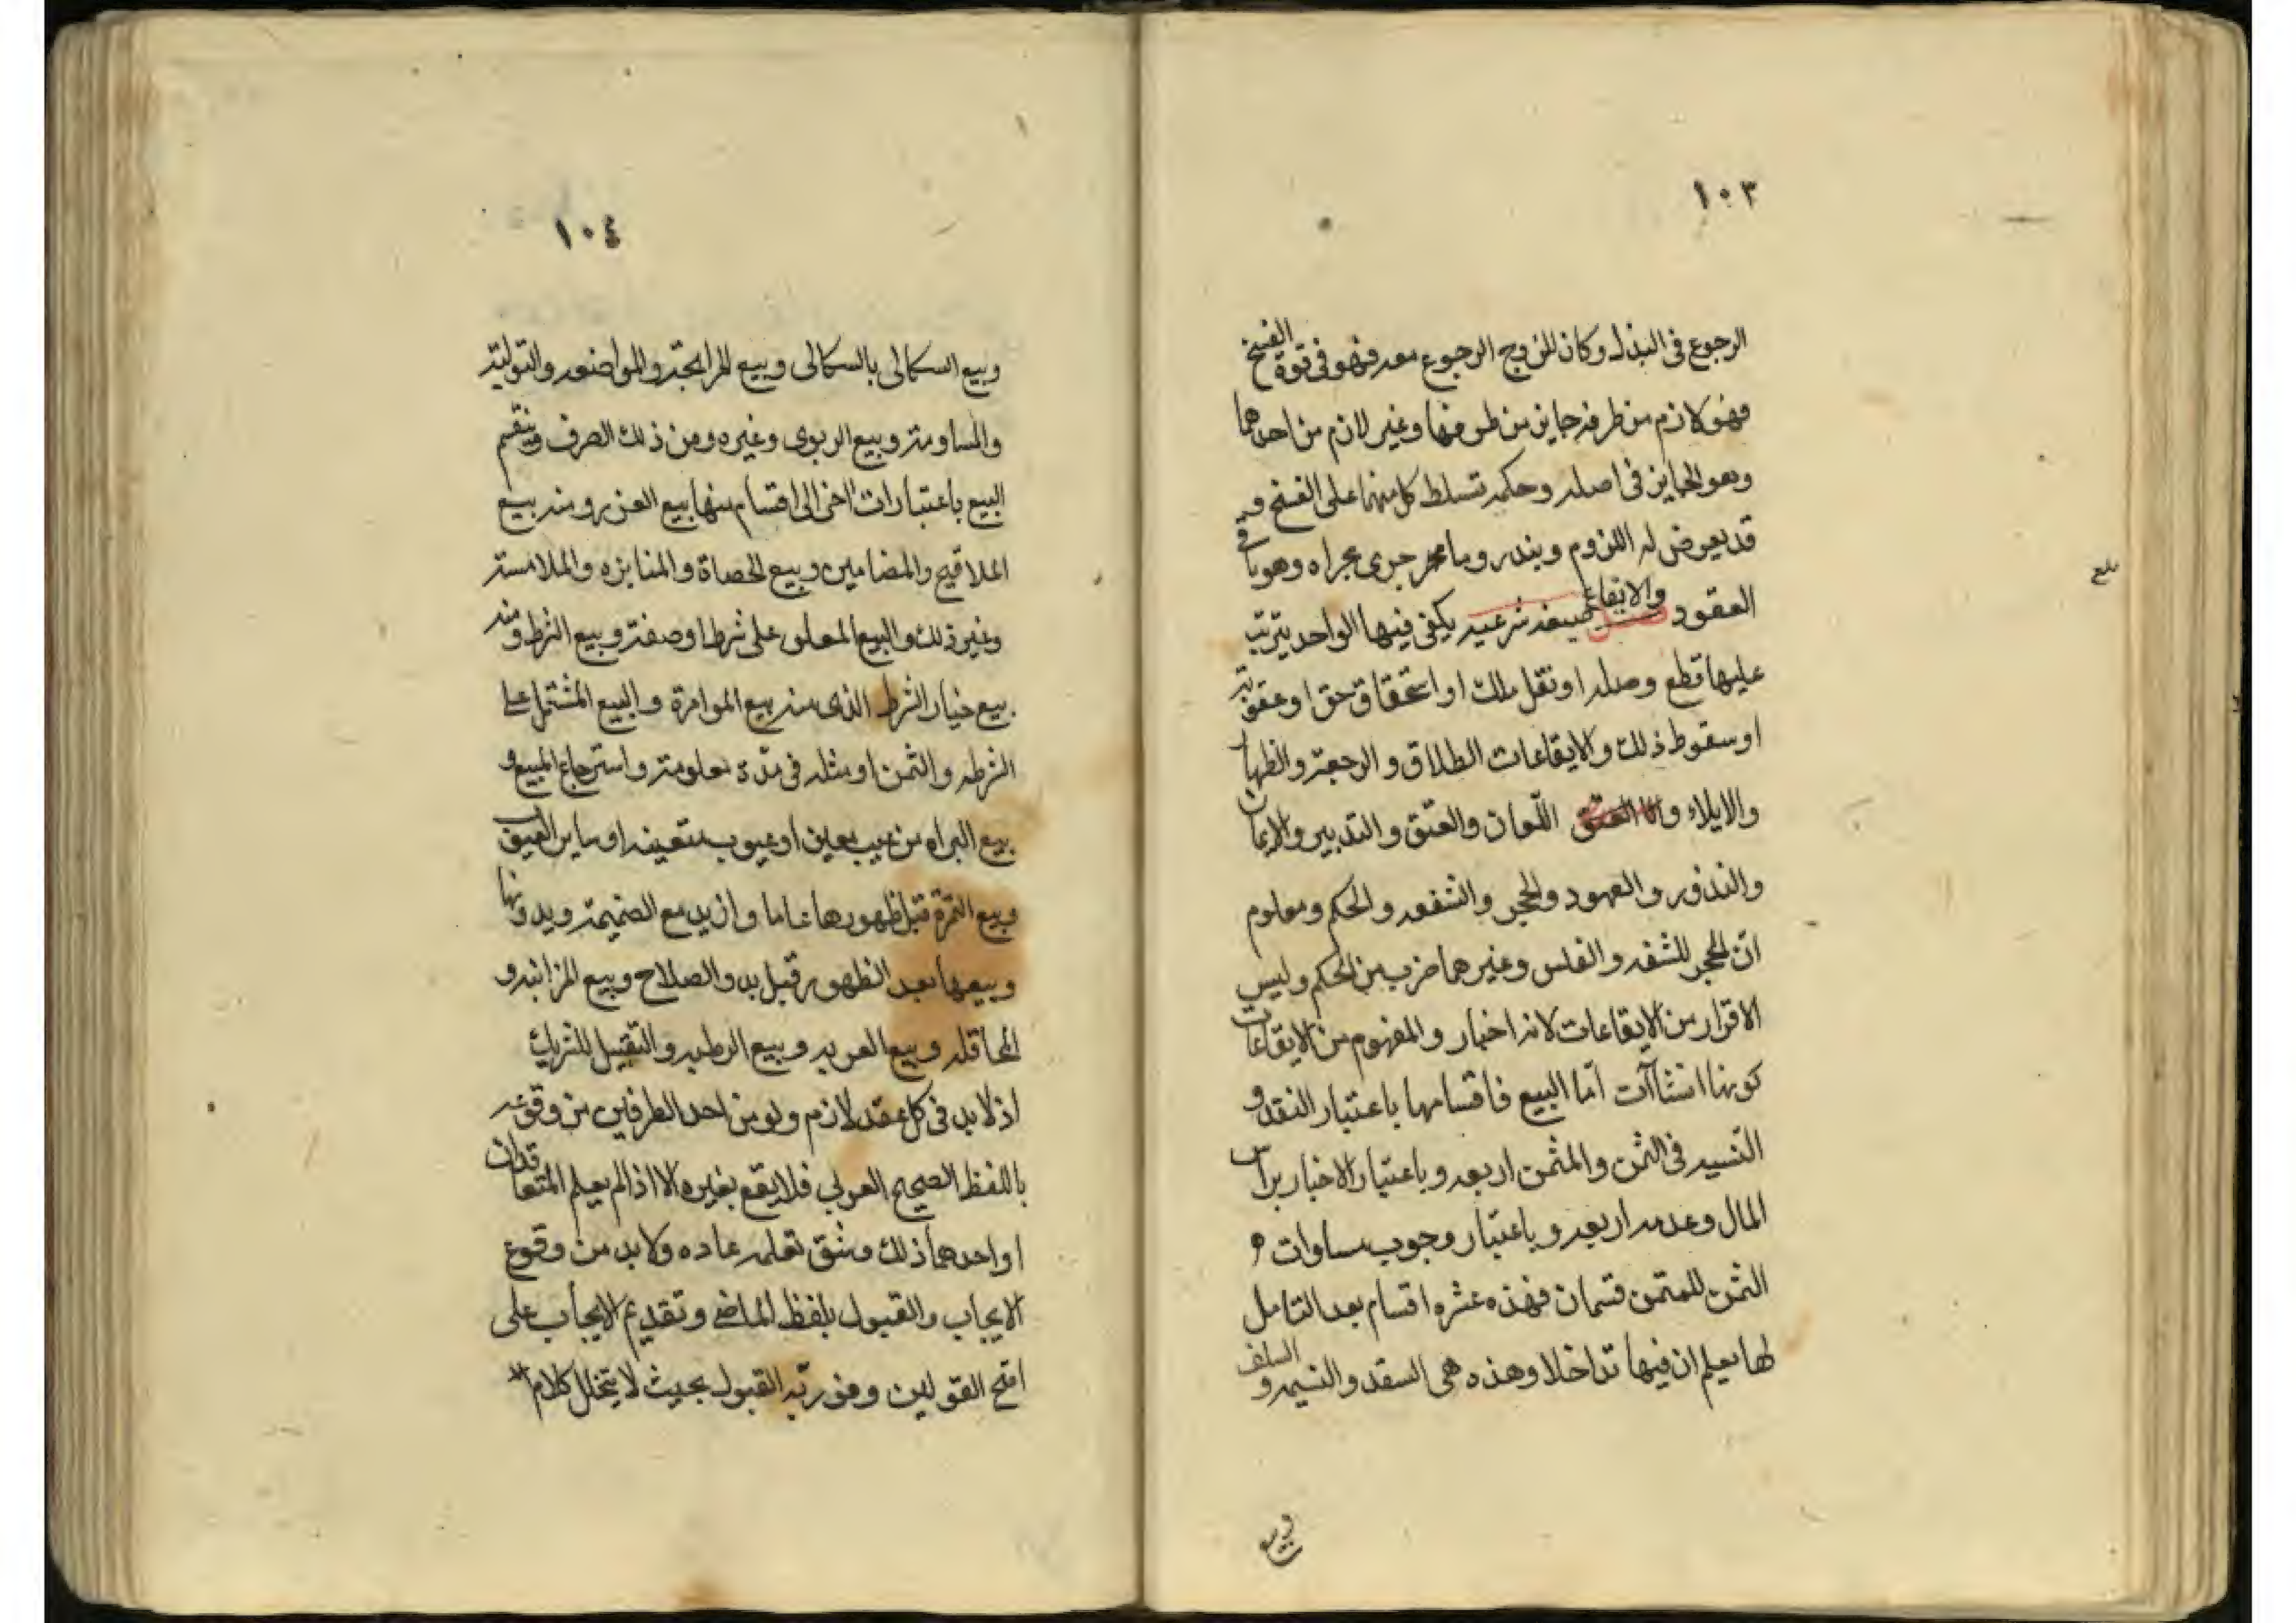 ١٠٣
الرجوع فى البذل وكان للزوج الرجوع معه فهو فى قوة الفسخ
فهو لازم من طرفه جايز من طرفها وغير لازم من احدهما
وهو الجايز فى اصله وحكمه تسلط كل منهما على الفسخ و
قد يعرض له اللزوم وبنذر وما جرى مجراه وهو باقى
العقود والايقاع صيغه شرعيه يكفى فيها الواحد يترتب
عليها قطع وصله او نقل ملك او استحقاق حق او عقوبة
او سقوط ذلك والايقاعات الطلاق والرجعة والظهار
والايلاء واللعان والعتق والتدبير والايمان
والنذور والعهود والحجر والشفعه والحكم ومعلوم
ان الحجر للسفه والفلس وغيرهما ضرب من الحكم وليس
الاقرار من الايقاعات لانه اخبار والمفهوم من الايقاعات
كونها انشاآت اما البيع فاقسامها باعتبار النقد و
النسيه فى الثمن والمثمن اربعه وباعتبار الاخبار براس
المال وعدمه اربعه وباعتبار وجوب مساوات
الثمن للمثمن قسمان فهذه عشره اقسام بعد التامل
لها يعلم ان فيها تداخلا وهذه هى النقد والنسيه والسلف
وبيع
بلغ
١٠٤
وبيع الكالى بالكالى وبيع المرابحة والمواضعه والتولية
والمساومة وبيع الربوى وغيره ومن ذلك الصرف وينقسم
البيع باعتبارات اخر الى اقسام منها بيع الغرر ومنه بيع
الملاقيح والمضامين وبيع الحصاة والمنابذه والملامسة
وغير ذلك والبيع المعلق على شرط او صفة وبيع الشرط ومنه
بيع خيار الشرط الذى منه بيع الموامرة والبيع المشتمل على
الشرط والثمن او مثله فى مدة معلومة واسترجاع المبيع و
بيع البراه من عيب معين او عيوب متعينه او ساير العيوب
وبيع الثمرة قبل ظهورها عاما وازيد مع الضميمة وبدونها
وبيعها بعد الظهور قبل بدو الصلاح وبيع المزابنه و
المحاقله وبيع العريه وبيع الرطبه والتقبيل للشريك
اذ لا بد فى كل عقد لازم ولو من احد الطرفين من وقوعه
باللفظ الصحيح العربي فلا يقع بغيره الا اذا لم يعلم المتعاقدان
او احدهما ذلك وشق تعلمه عاده ولا بد من وقوع
الايجاب والقبول بلفظ الماضى وتقديم الايجاب على
اصح القولين وفوريّه القبول بحيث لا يتخلل كلام